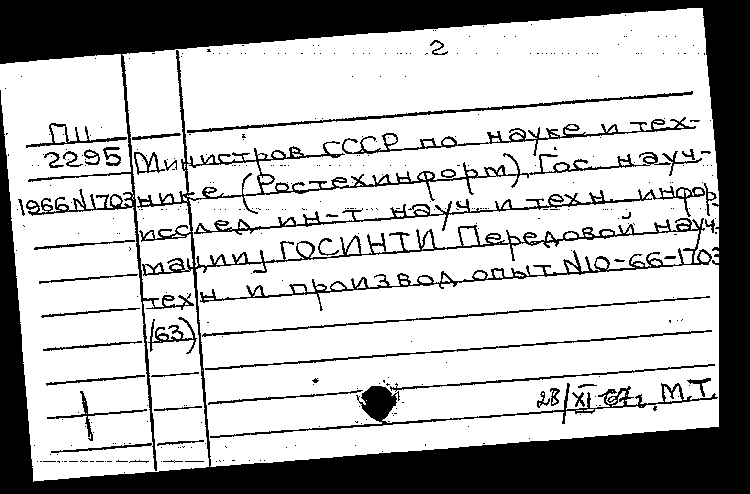 2
П11
2295 Министров СССР по науке и тех-
1966 N1703 нике (Ростехинформ). Гос. науч.-
исслед. ин-т науч. и техн. инфор
мации, ГОСИНТИ Передовой науч.
техн. и производ. опыт. N10-66-1703
/63)
28/XI-67г. М.Т.